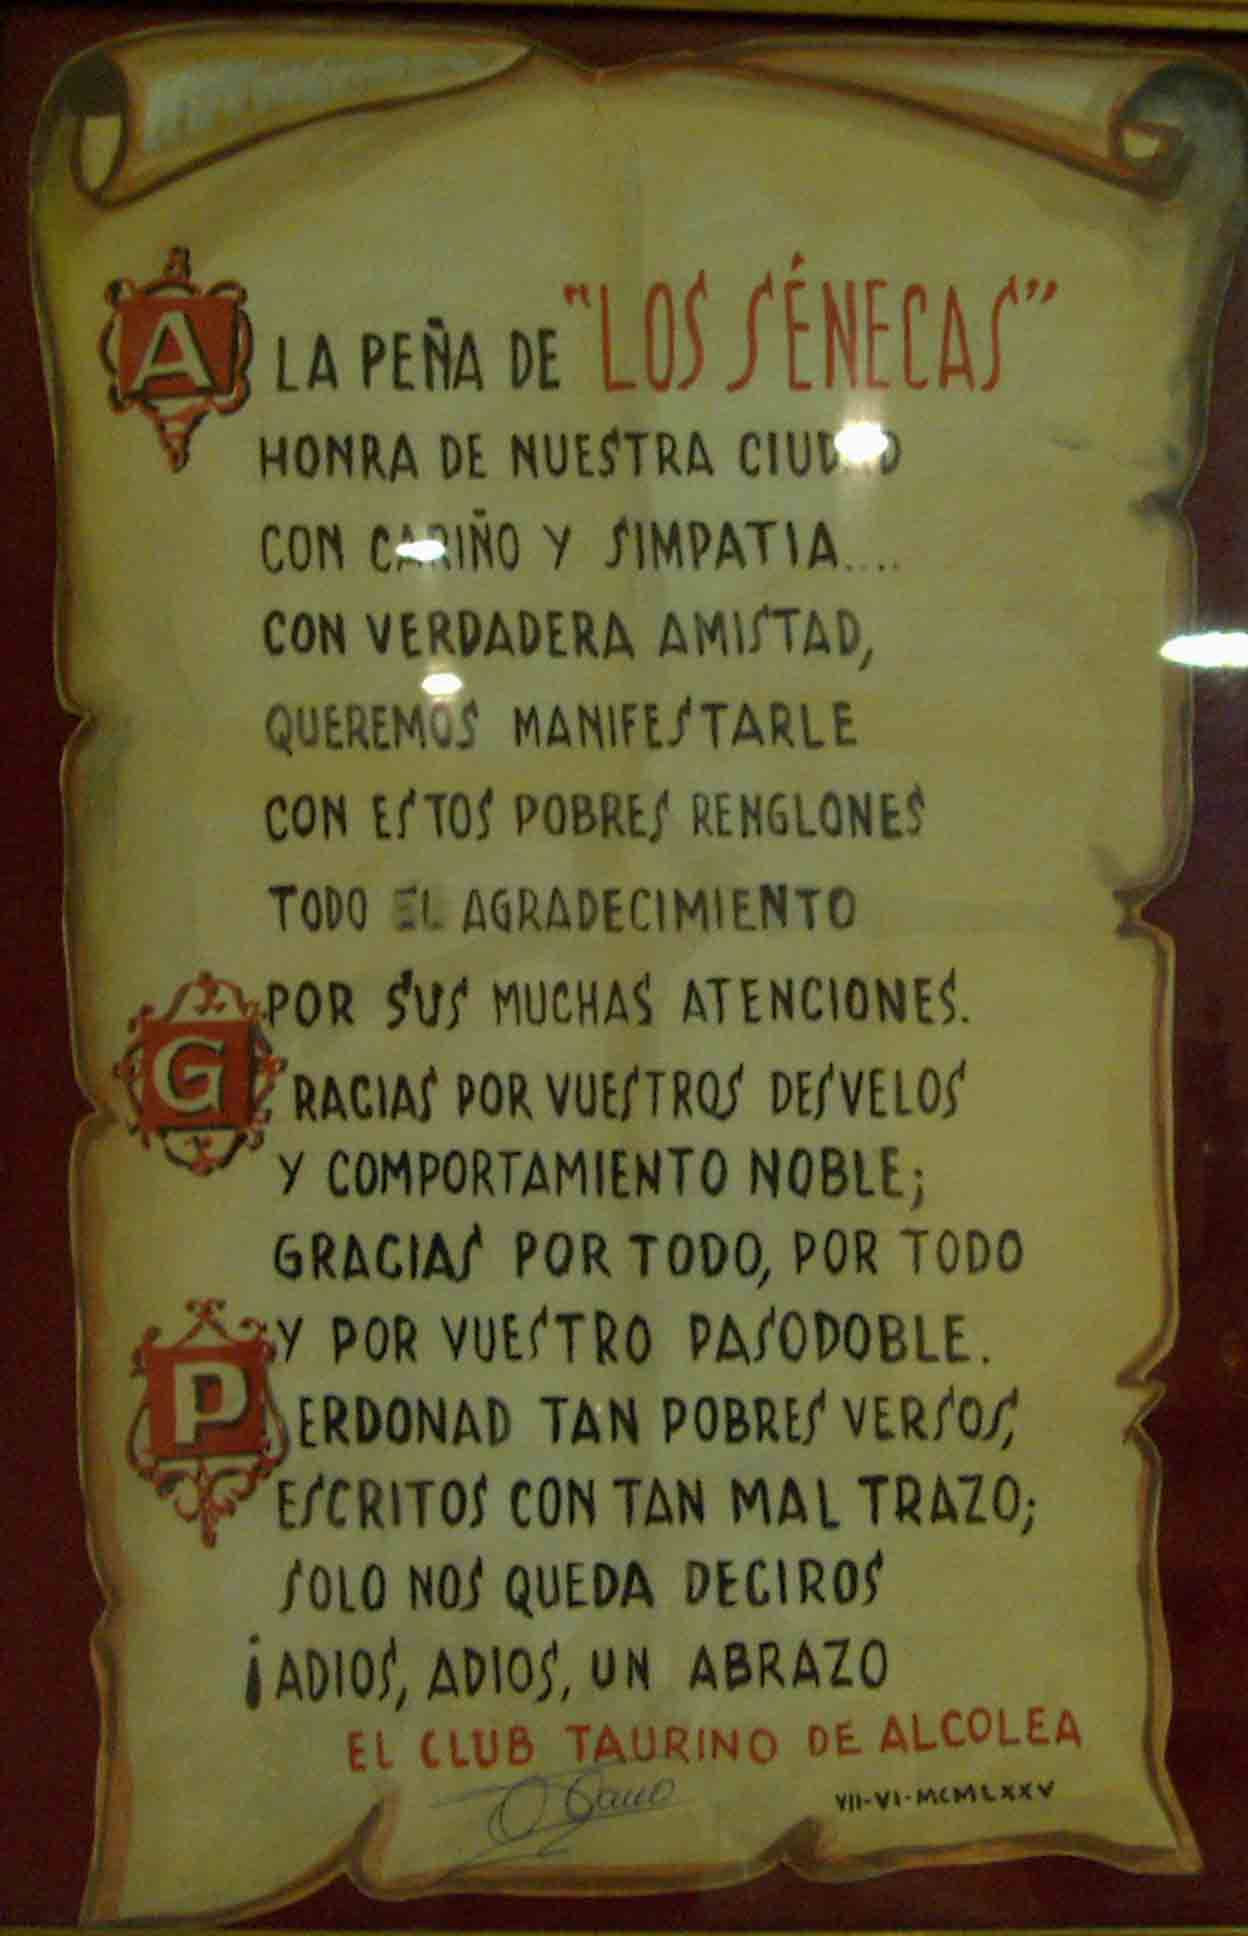 A LA PEÑA DE "LOS SÉNECAS"
HONRA DE NUESTRA CIUDAD
CON CARIÑO Y SIMPATIA....
CON VERDADERA AMISTAD,
QUEREMOS MANIFESTARLE
CON ESTOS POBRES RENGLONES
TODO EL AGRADECIMIENTO
POR SUS MUCHAS ATENCIONES.
GRACIAS POR VUESTROS DESVELOS
Y COMPORTAMIENTO NOBLE;
GRACIAS POR TODO, POR TODO
Y POR VUESTRO PASODOBLE.
PERDONAD TAN POBRES VERSOS,
ESCRITOS CON TAN MAL TRAZO;
SOLO NOS QUEDA DECIROS
¡ADIOS, ADIOS, UN ABRAZO
EL CLUB TAURINO DE ALCOLEA
VII-VI-MCMLXXV